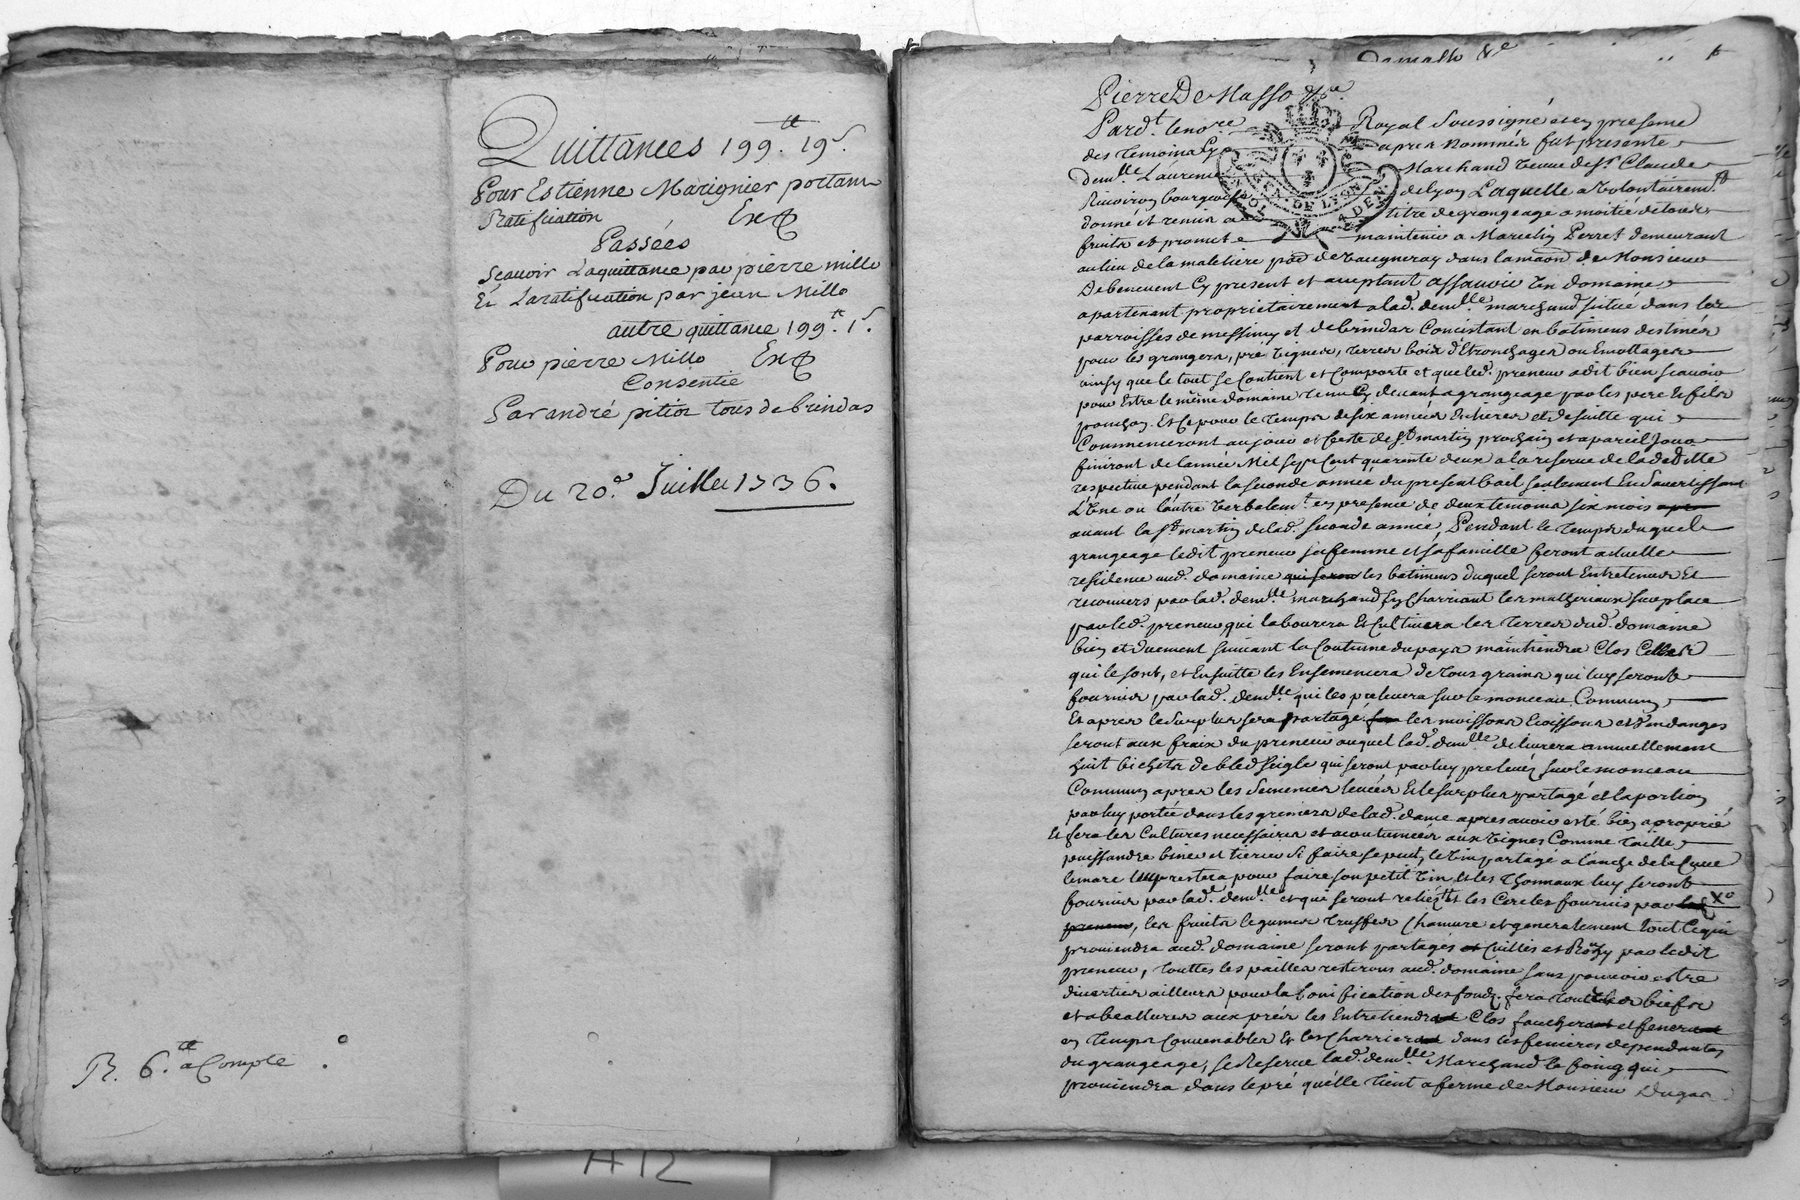 Quittances 199.# 19s.
Pour Estienne Marignier portant
Ratification Exp
Passées
Scauoir Laquittance par pierre millo
Et Laratification par jean Millo
autre quittance 199.# 1s.
Pour pierre Millo Exp
Consentie
Par andré pitiot tous de brindas
Du 20.e Juillet 1736.
R. 6.# a Compte
Pierre De Masso
Pard.t Royal Soussigné et en presence
des temoins apres Nommés fut presente
dem.lle Laurence Marchand veuve de S.r Claude
bourgeois de Lyon Laquelle a Volontairem.t
donné et remis a titre de grangeage a moitié de tous
fruits et promet maintenir a Marcelin Perret demeurant
au lieu de la maletiere p.sse de Vaugneray dans la maison de Monsieur
Debenevent Cy present et acceptant assauoir Un domaine
apartenant proprietairement a lad. dem.lle marchand situé dans les
parroisses de messimy et de brindas Concistant en batimens destinés
pour les grangers, pré vignes, terres bois d'Etronchages ou Emottages
ainsy que le tout se Contient et Comporte et que led. preneur a dit bien scauoir
pour Estre le même domaine tenu Cy deuant a grangeage par les pere et fils
Et Ce pour le temps de six années Entieres et de suitte qui
Commenceront au jour et feste de S.t martin prochain et a pareil Jour
finiront de l'année Mil sept Cent quarante deux a la reserue de la deditte
respective pendant la seconde année du present bail seulement En S'auertissant
L'Une ou l'autre Verbalem.t en presence de deux temoins six mois
auant la S.t martin de lad. seconde année, Pendant le temps duquel
grangeage ledit preneur sa femme et sa famille feront actuelle
residence aud. domaine les batimens duquel seront Entretenus Et
recouuers par lad. dem.lle marchand En Charriant les matheriaux sur place
par led. preneur, qui labourera Et Cultivera les terres dud. domaine
bien et duement suiuant la Coutume du pays maintiendra Clos Celles
qui le sont, et Ensuitte les Ensemencera de tous grains qui luy seront
fournis par lad. dem.lle qui les preleuera sur le monceau Commun
Et apres le surplus sera partagé, les moissons Ecossons et Vendanges
seront aux fraix du preneur auquel lad. dem.lle deliurera annuellement
huit bichets de bled seigle qui seront par luy preleués sur le monceau
Commun apres les Semences leuées Et le surplus partagé et la portion
par luy portée dans les greniers de lad. dame apres auoir esté bien aproprié
Et fera les Cultures necessaires et acoutumées aux Vignes Comme taille
puissandre biner et tiercer Si faire se peut, le Vin partagé a l'anche de la Cuue
le marc luy restera pour faire son petit Vin Et les Thonnaux luy seront
fournis par lad.e dem.lle et qui seront reliés Et les Cercles fournis par
les fruits legumes Truffes Chanure et generalement tout Ce qui
prouiendra aud. domaine seront partagés Cuillis et par ledit
preneur, touttes les pailles resterons aud. domaine sans pouuoir estre
diuerties ailleurs pour la bonification des fonds, fera touttes les biefs
et abeallures aux prés les Entretiendra Clos fauchera et fenera
en Temps Conuenables Et les Charriera dans les fenieres dependantes
du grangeage, se Reserue lad. dem.lle Marchand le foing qui
prouiendra dans le pré qu'elle tient a ferme de Monsieur Dugas